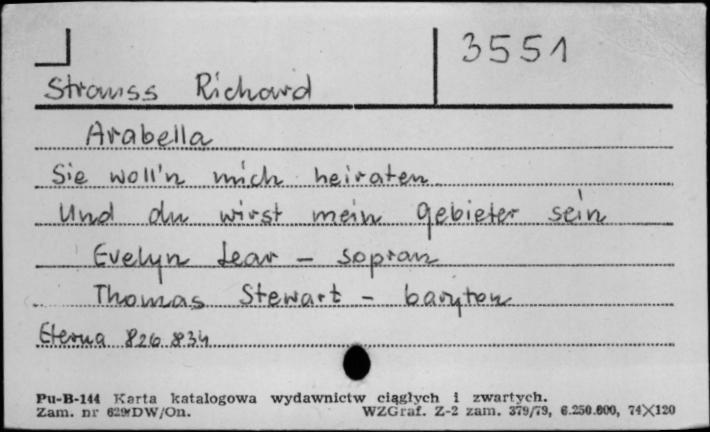 3551
Strauss Richard
Arabella
Sie woll'n mich heiraten
Und du wirst mein Gebieter sein
Evelyn Lear - sopran
Thomas Stewart - baryton
Eterna 826 834
Pu-B-144 Karta katalogowa wydawnictw ciągłych i zwartych.
Zam. nr 629/DW/On. WZGraf. Z-2 zam. 379/79, 6.250.000, 74X120